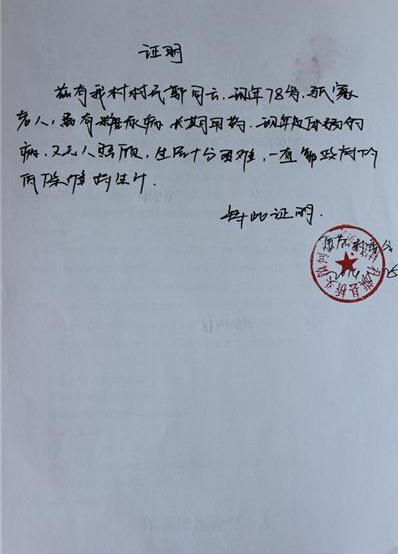 证明
兹有我村村民斯同云,现年78岁,孤寡
老人,患有糖尿病 长期用药.现年老体弱多
病,又无人照顾,生活十分困难,一直靠政府的
低保维持生计.
特此证明.
村委会